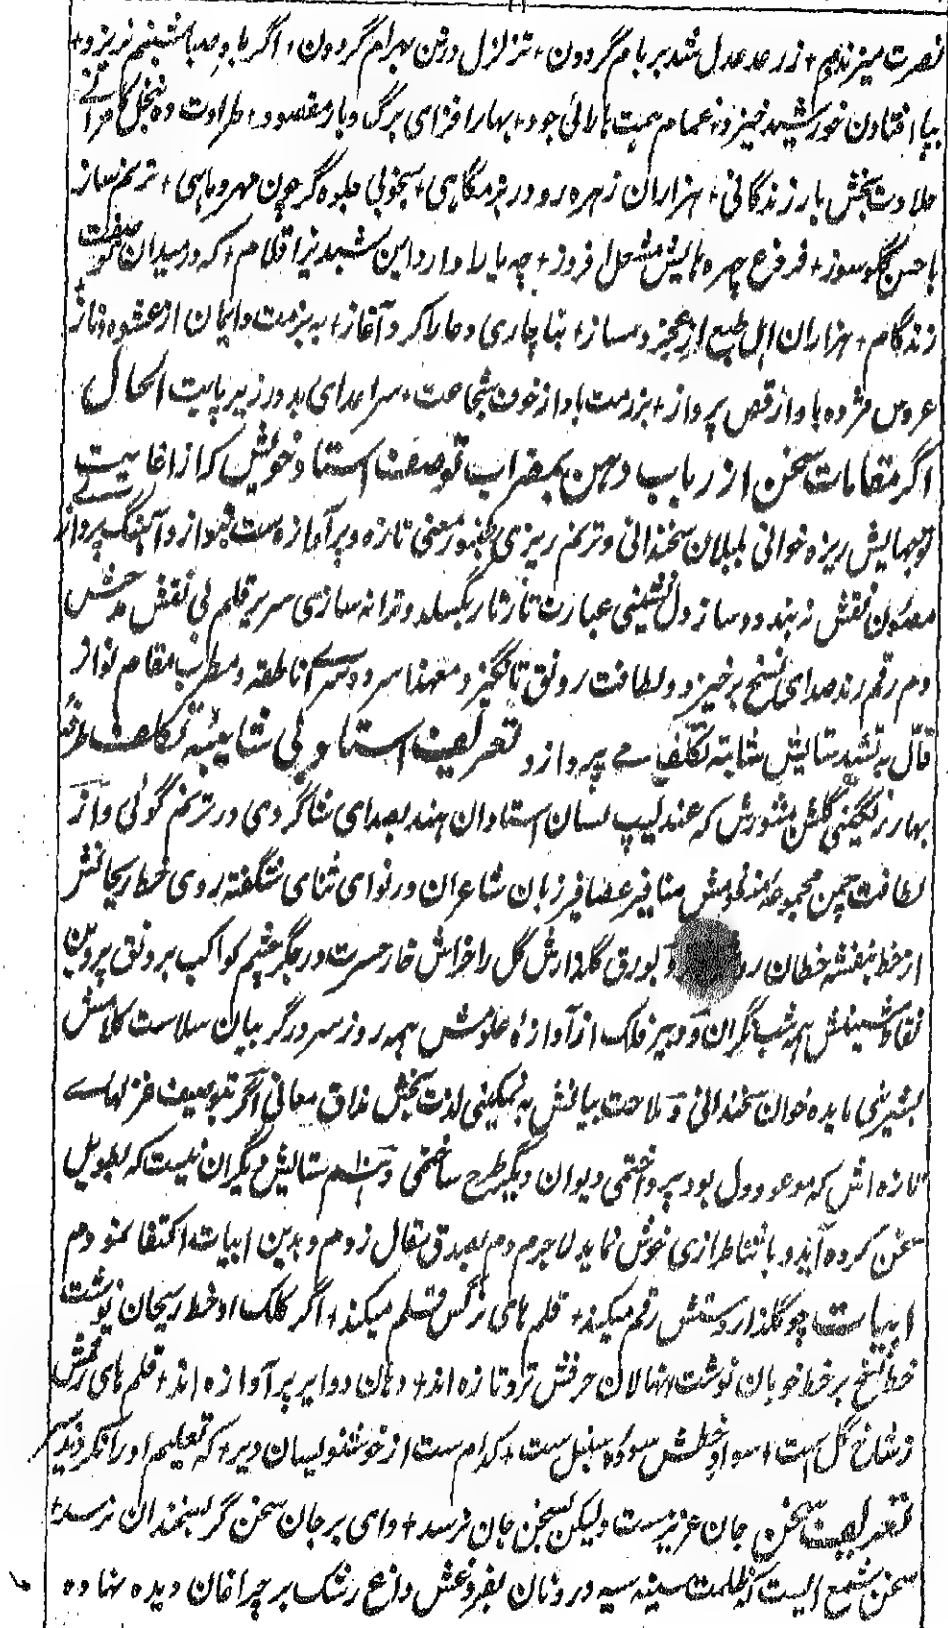 نصرت میزندهم + ز رعد عدل شد بر بام گردون + تزلزل در تن بهرام گردون + اگر باد صبا شبنم نریزد +
بپا افتادن خورشید خیزد + غمام همت بارائی جود + بهار افزای برگ و بار مقصود + طراوت ده نخل کامرانے
حلاوت بخش بار زندگانی + هزاران زهره رو در بزمگاهی + بخوبی جلوه گر چون مهر و ماهی + ترنم ساز
با حسن گلوسوز + فروغ چهره هایش مشعل افروز + چه یارا دارد این شبدیز اقلام + که در میدان صفت
زند گام + هزاران اهل طبع از عجز دمساز + بناچاری دعا را کرد آغاز + به بزمت دایمان از عشوه و ناز
عروس مژده با واز قص پرواز + بزرمت باد از خوف شجاعت + سر اعدای بد در زیر پایت الحال
اگر مقامات سخن از رباب دهن بمضراب توصیف استاد خویش که از غایت
توجهایش ریزه خوانی بلبلان سخندانی و ترنم ریزی طنبور معنی تازه و پرآوازه ست بنوازد و آهنگ پرداز
مضمون نقش نه بندد و ساز دل نشینی عبارت تار تار بگسلد و ترانه سازی سریر قلم نی نقش مدحش
دم رقم زند صدای نسخ برخیزد و لطافت رونق تا نگیزد معهذا سرود سرائے ناطقه و مطرب مقام نواز
قال به تشد ستایش شائبه تکلف مے پردازد تعریف استاد بی شایبه تکلف طرفه
بهار رنگینی گلشن منثورش که عندلیب لسان استادان هند بصدای شاگردی در ترنم گوئی و از
لطافت چمن مجموعه منظومش منافیر عصافیر زبان شاعران در نوای ثنای شگفته روی خط ریحانش
از خط بنفشه خطان و بورق گلدارش گل را خراش خار حسرت در جگر چشم کواکب بر رونق پروین
نقاط شینش همه شب نگران و دبیر فلک از آوازۀ علومش همه روز سر در گریبان سلاست کلامش
بشیرینی مایده خوان سخندانی و ملاحت بیانش به نمکینی لذت بخش مذاق معانی اگر توصیف غزلهاے
تازه اش که موعود دل بود پرداختمی دیوان دیگر طرح ساختمی و ستایش دیگران نیست که بطویل
سخن کرده آید و باثناطرازی خوش نماید لاجرم دم بصدق مقال زدم و بدین ابیات اکتفا نمودم
ابیات چو گلذار وصفش رقم میکند + قلم های نرگس قلم میکند + اگر کلک او خط ریحان نوشت
خط نسخ بر خط خوبان نوشت + نهالان حرفش تر و تازه اند + دهان دوایر پر آوازه اند + قلم های نقش
ز شاخ گل ست + سواد خطش سوده سنبل ست + کدام ست از خوشنویسان دیر + که تعلیم او را نگردید
تعریف سخن جان عزیز ست ولیکن بسخن جان نرسد + وای بر جان سخن گر بسخندان نرسد +
سخن شمع ایست که بظلمت سینه سیه درونان بفروغش داغ رشک بر چراغان دیده نهاده